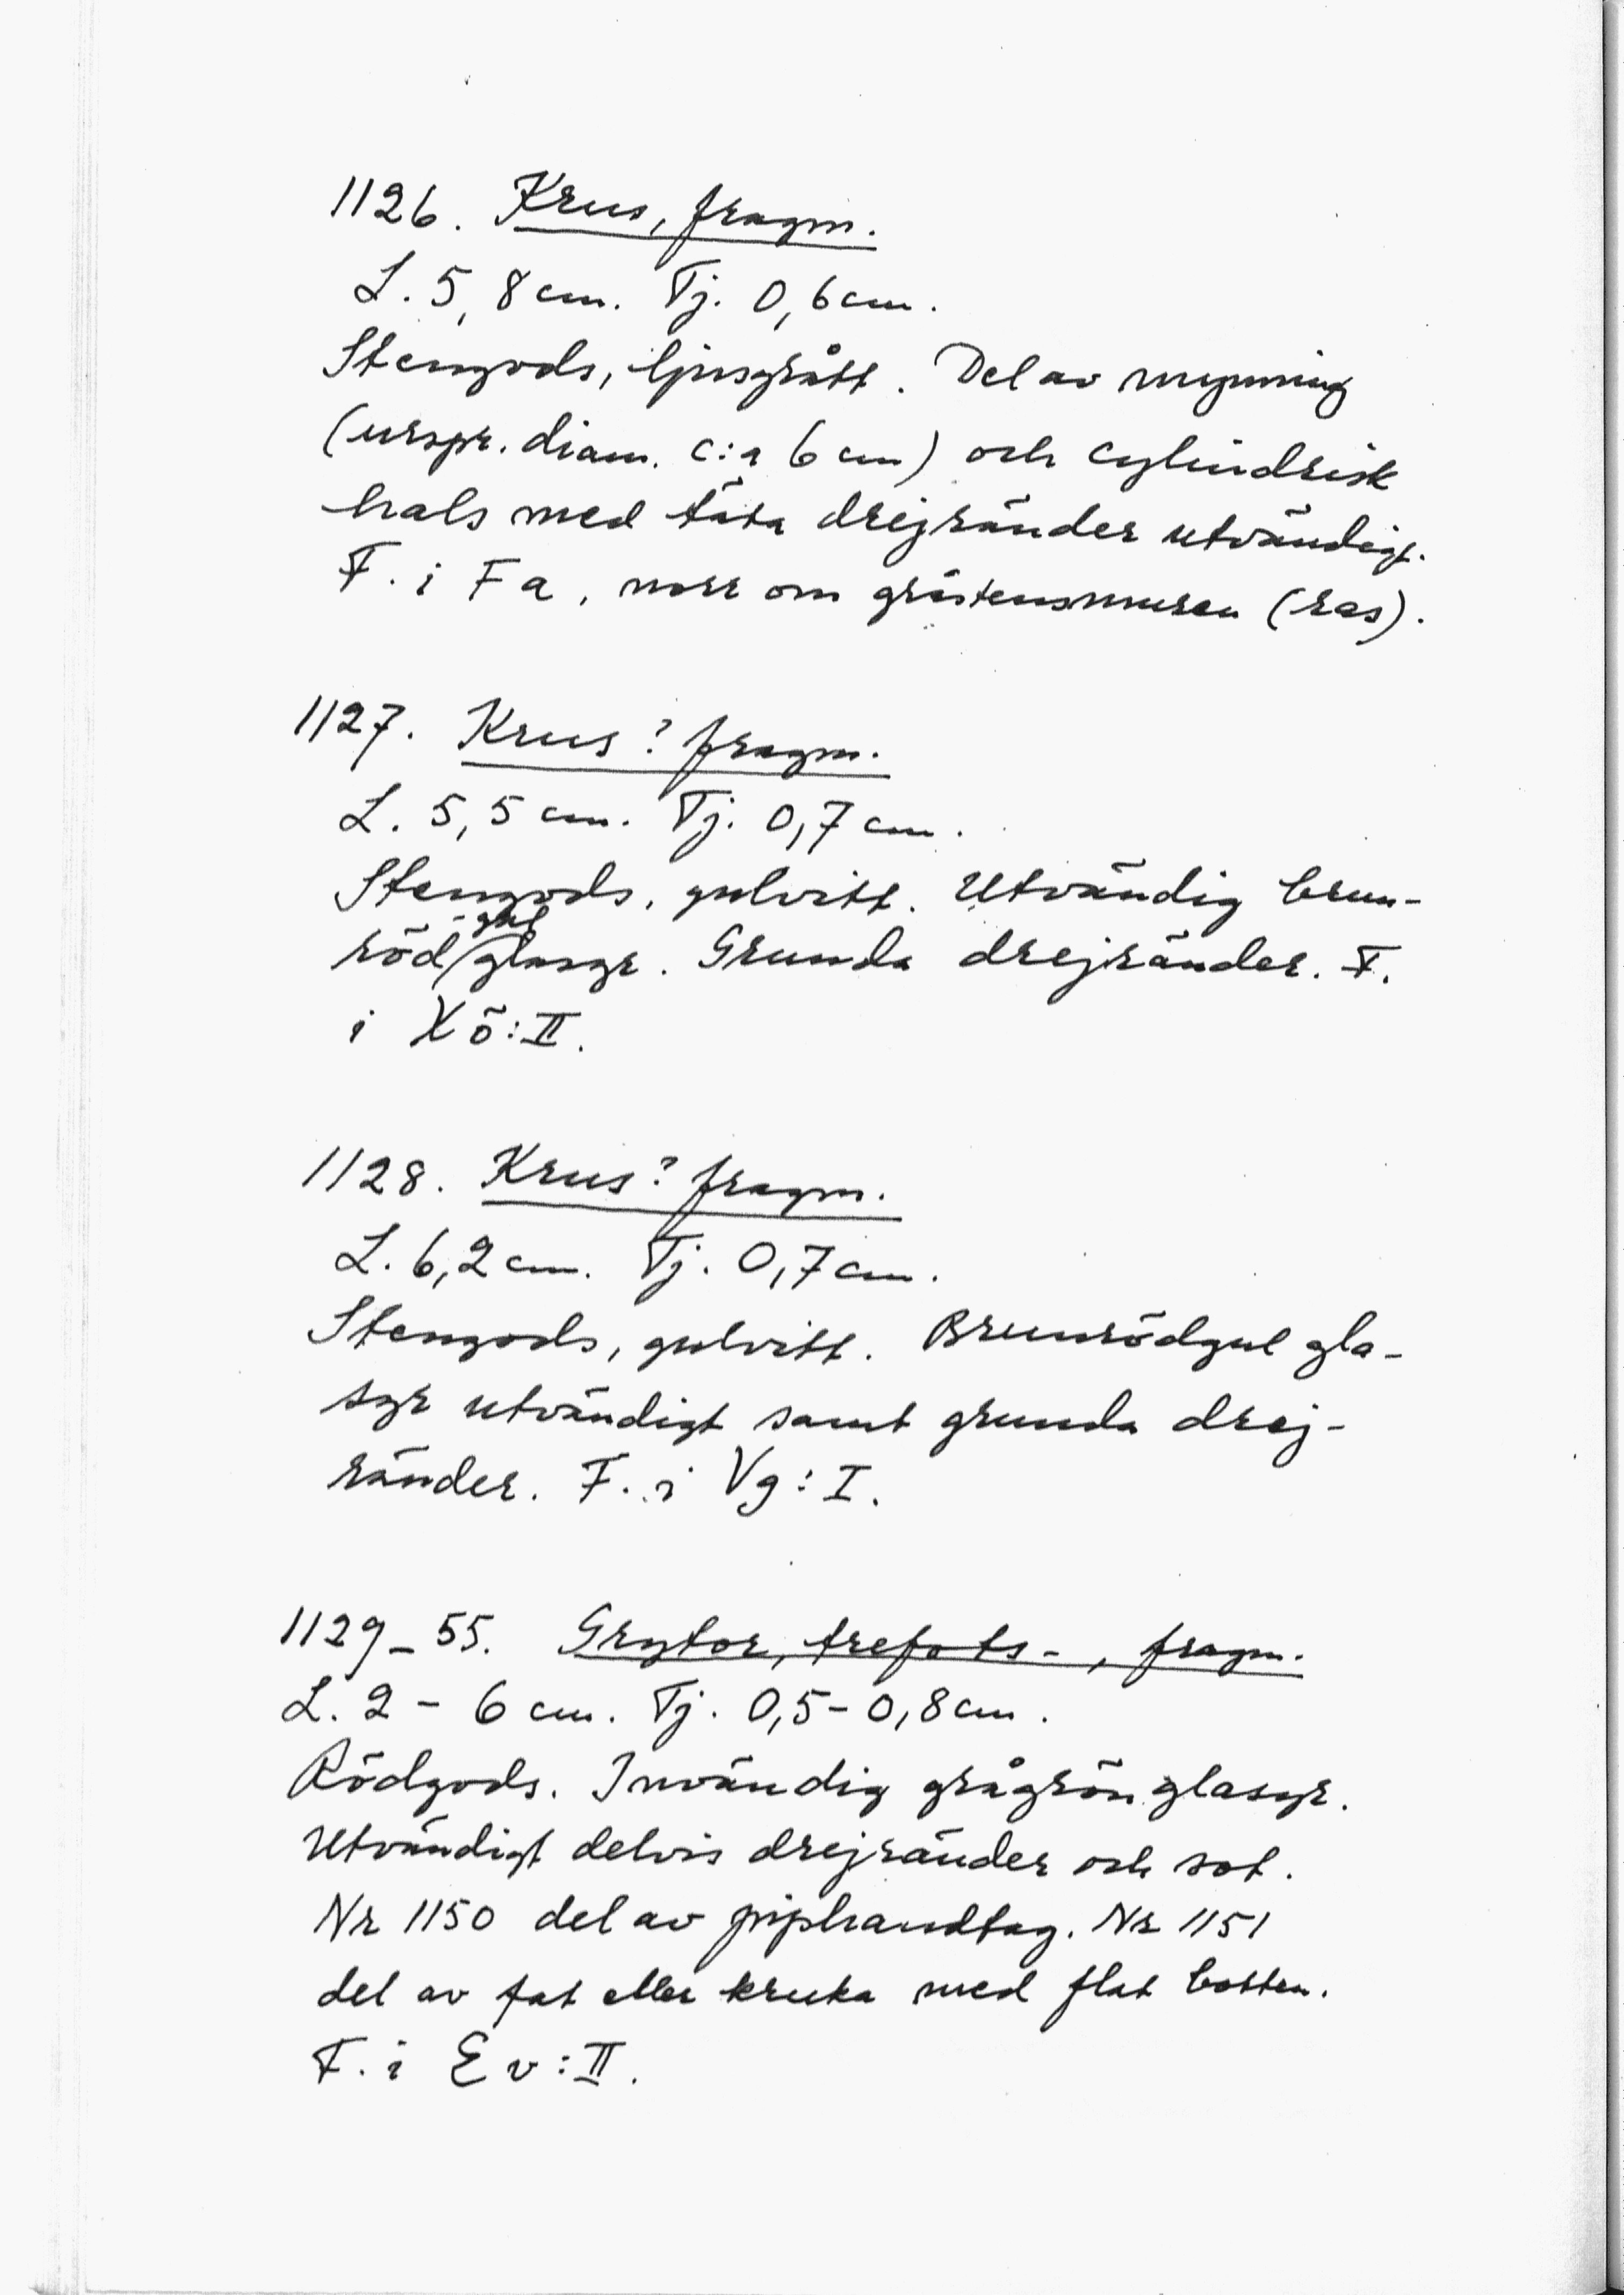 1126. Krus, fragm.
L. 5,8 cm. Tj. 0,6 cm.
Stengods, ljusgrått. Del av mynning
(urspr. diam. c:a 6 cm) och cylindrisk
hals med täta drejränder utvändigt.
F. i Fa, norr om gråstensmuren (ras).
1127. Krus? fragm.
L. 5,5 cm. Tj. 0,7 cm.
Stengods, gulvitt. Utvändig brun-
röd-gul glasyr. Grunda drejränder. F.
i Xö:II.
1128. Krus? fragm.
L. 6,2 cm. Tj. 0,7 cm.
Stengods, gulvitt. Brunrödgul gla-
syr utvändigt samt grunda drej-
ränder. F. i Vg:I.
1129-55. Grytor, trefots-, fragm.
L. 2 - 6 cm. Tj. 0,5-0,8 cm.
Rödgods. Invändig grågrön glasyr.
Utvändigt delvis drejränder och sot.
Nr 1150 del av piphandtag. Nr 1151
del av fat eller kruka med flat botten.
F. i Ev:II.